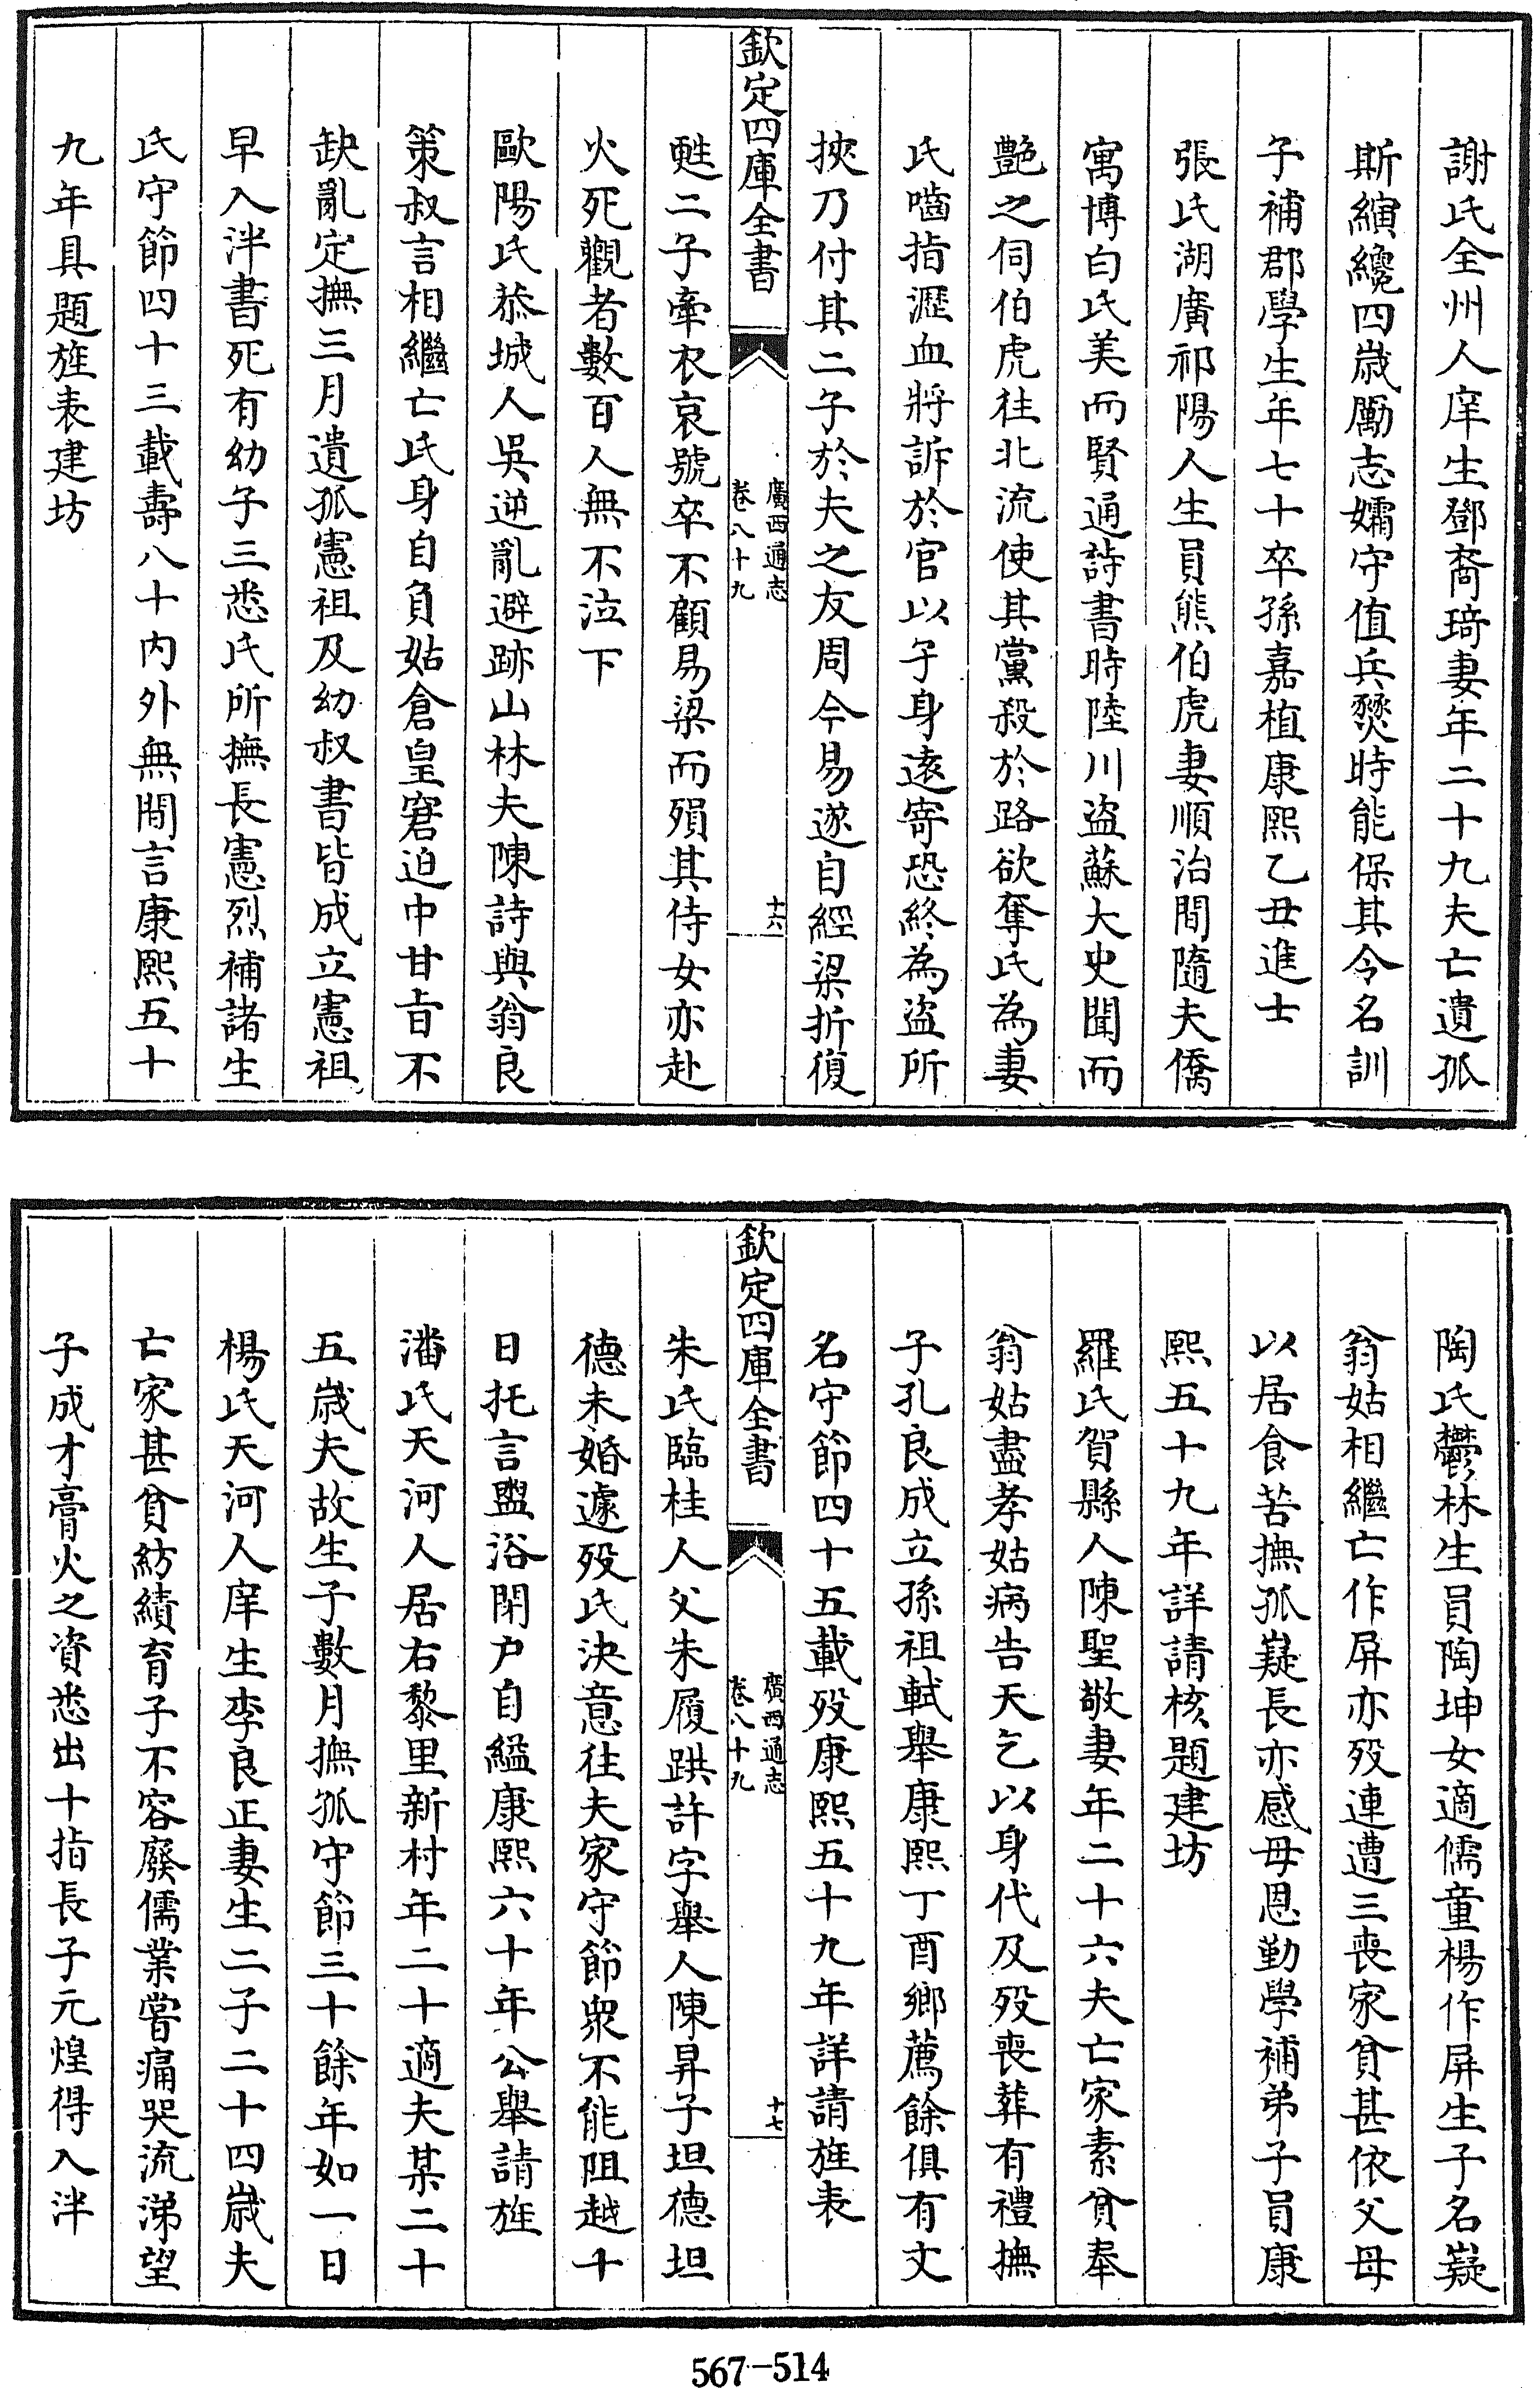 謝氏全州人庠生鄧裔琦妻年二十九夫亡遺孤
斯縯纔四歲勵志孀守值兵燹時能保其令名訓
子補郡學生年七十卒孫嘉植康熙乙丑進士
張氏湖廣祁陽人生員熊伯虎妻順治間隨夫僑
寓博白氏美而賢通詩書時陸川盜蘇大史聞而
艷之伺伯虎往北流使其黨殺於路欲奪氏為妻
氏嚙指瀝血將訴於官以子身遠寄恐終為盜所
挾乃付其二子於夫之友周今易遂自經梁折復
欽定四庫全書
廣西通志
卷八十九
十六
甦二子牽衣哀號卒不顧易梁而殞其侍女亦赴
火死觀者數百人無不泣下
歐陽氏恭城人吳逆亂避跡山林夫陳詩與翁良
策叔言相繼亡氏身自負姑倉皇窘迫中甘旨不
缺亂定撫三月遺孤憲祖及幼叔書皆成立憲祖
早入泮書死有幼子三悉氏所撫長憲烈補諸生
氏守節四十三載壽八十內外無間言康熙五十
九年具題旌表建坊
陶氏鬱林生員陶坤女適儒童楊作屏生子名嶷
翁姑相繼亡作屏亦歿連遭三喪家貧甚依父母
以居食苦撫孤嶷長亦感母恩勤學補弟子員康
熙五十九年詳請核題建坊
羅氏賀縣人陳聖敬妻年二十六夫亡家素貧奉
翁姑盡孝姑病告天乞以身代及歿喪葬有禮撫
子孔良成立孫祖軾舉康熙丁酉鄉薦餘俱有文
名守節四十五載歿康熙五十九年詳請旌表
欽定四庫全書
廣西通志
卷八十九
十七
朱氏臨桂人父朱履跌許字舉人陳昇子坦德坦
德未婚遽歿氏決意往夫家守節眾不能阻越十
日托言盥浴閉戶自縊康熙六十年公舉請旌
潘氏天河人居右黎里新村年二十適夫某二十
五歲夫故生子數月撫孤守節三十餘年如一日
楊氏天河人庠生李良正妻生二子二十四歲夫
亡家甚貧紡績育子不容廢儒業嘗痛哭流涕望
子成才膏火之資悉出十指長子元煌得入泮
567-514